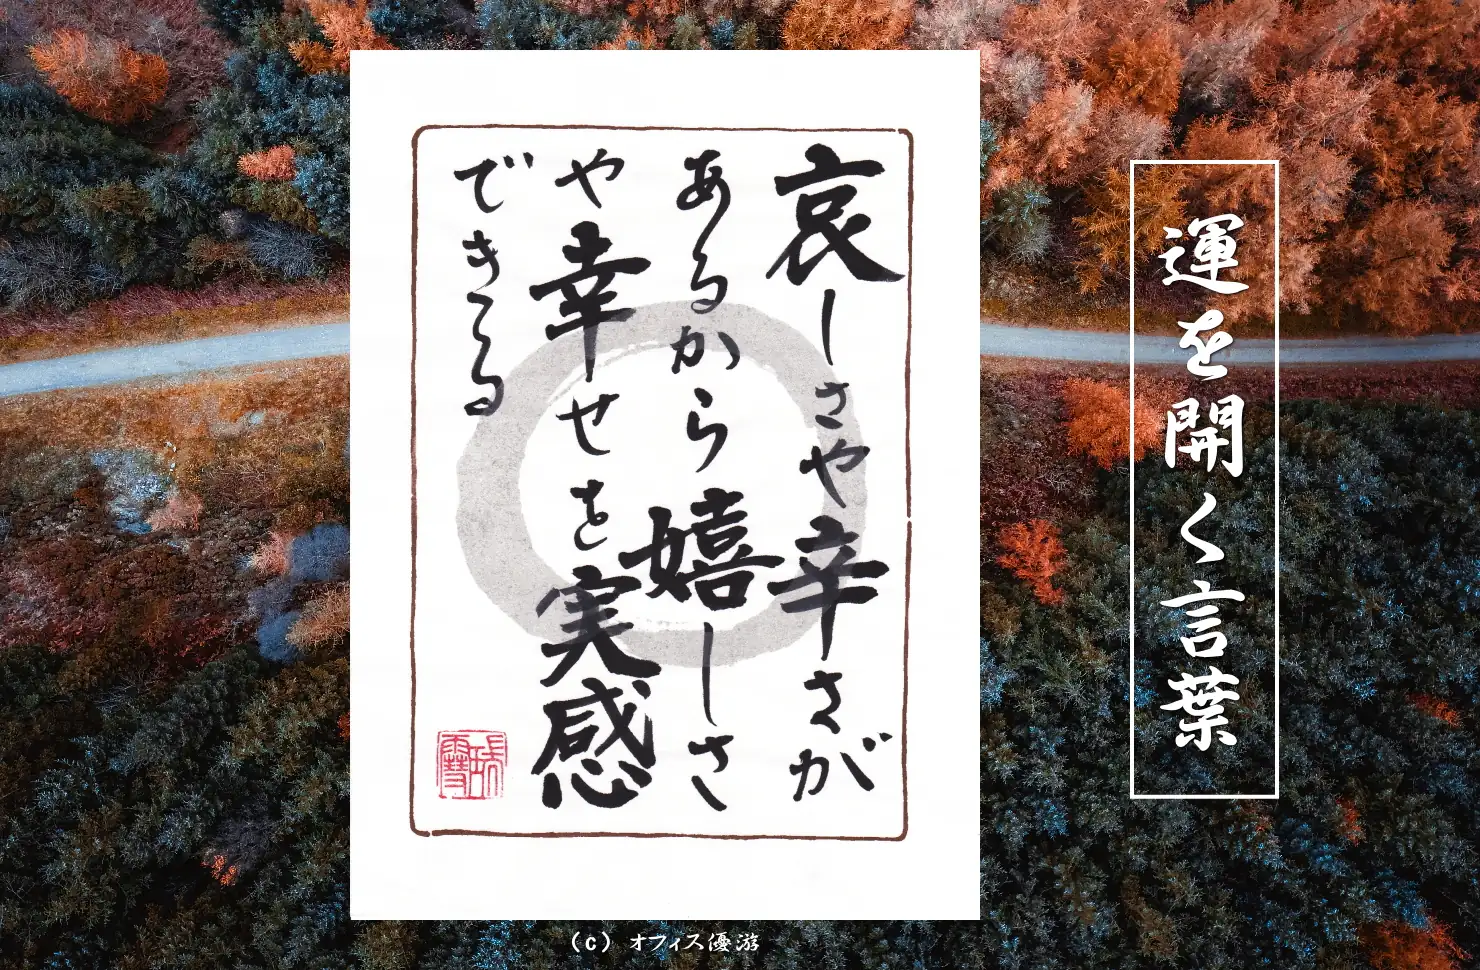 運を開く言葉
哀しさや辛さが
あるから嬉しさ
や幸せを実感
できる
(c) オフィス優游